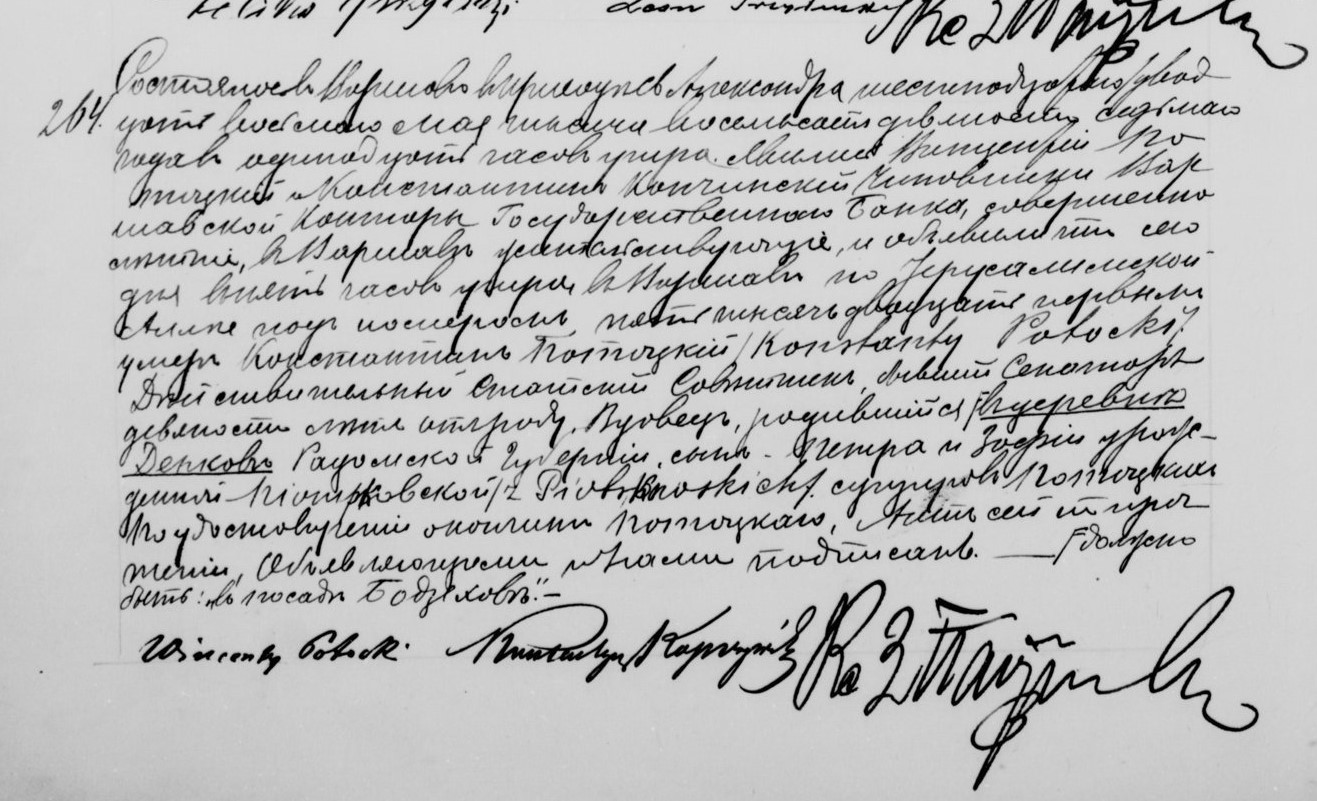 264.
Состоялось въ Варшавѣ въ приходѣ св. Александра шестнадцатаго /двад
цать восьмаго Мая тысяча восемьсотъ девяносто седьмаго
года въ одиннадцать часовъ утра. Явились Винцентій По
тоцкій и Константинъ Копчинскій Чиновники Вар
шавской Конторы Государственнаго Банка, совершенно
лѣтніе, въ Варшавѣ жительствующіе, и объявили что сего
дня въ пять часовъ утра, въ Варшавѣ по Іерусалимской
Аллеѣ подъ номеромъ пять тысячъ двадцать первымъ
умеръ Константинъ Потоцкій /Konstanty Potocki/.
Дѣйствительный Статскій Совѣтникъ, бывшій Сенаторъ
девяносто лѣтъ отъ роду. Вдовецъ, родившійся въ деревнѣ
Денковъ Радомской Губерніи, сынъ Петра и Зофіи урож-
денной Піотрковской /z Piotrkowskich/. супруговъ Потоцкихъ
По удостовѣреніи о кончинѣ Потоцкаго, Актъ сей по проч
теніи, Объявляющими и Нами подписанъ. — /должно
быть: „въ посадѣ Бодзеховъ". –
Wincenty Potocki. Konstanty Kopczyński